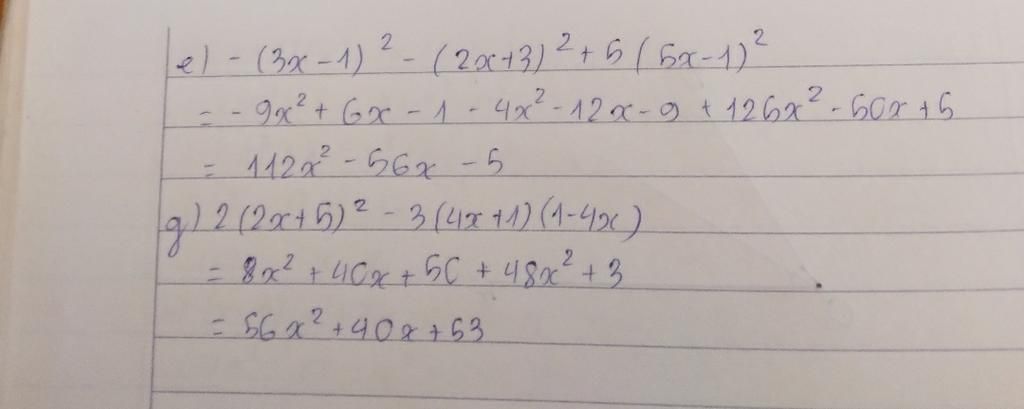 e) - (3x-1)² - (2x+3)² + 5(5x-1)²
= - 9x² + 6x - 1 - 4x² - 12x - 9 + 125x² - 50x + 5
= 112x² - 56x - 5
g) 2(2x+5)² - 3(4x+1)(1-4x)
= 8x² + 40x + 50 + 48x² + 3
= 56x² + 40x + 53